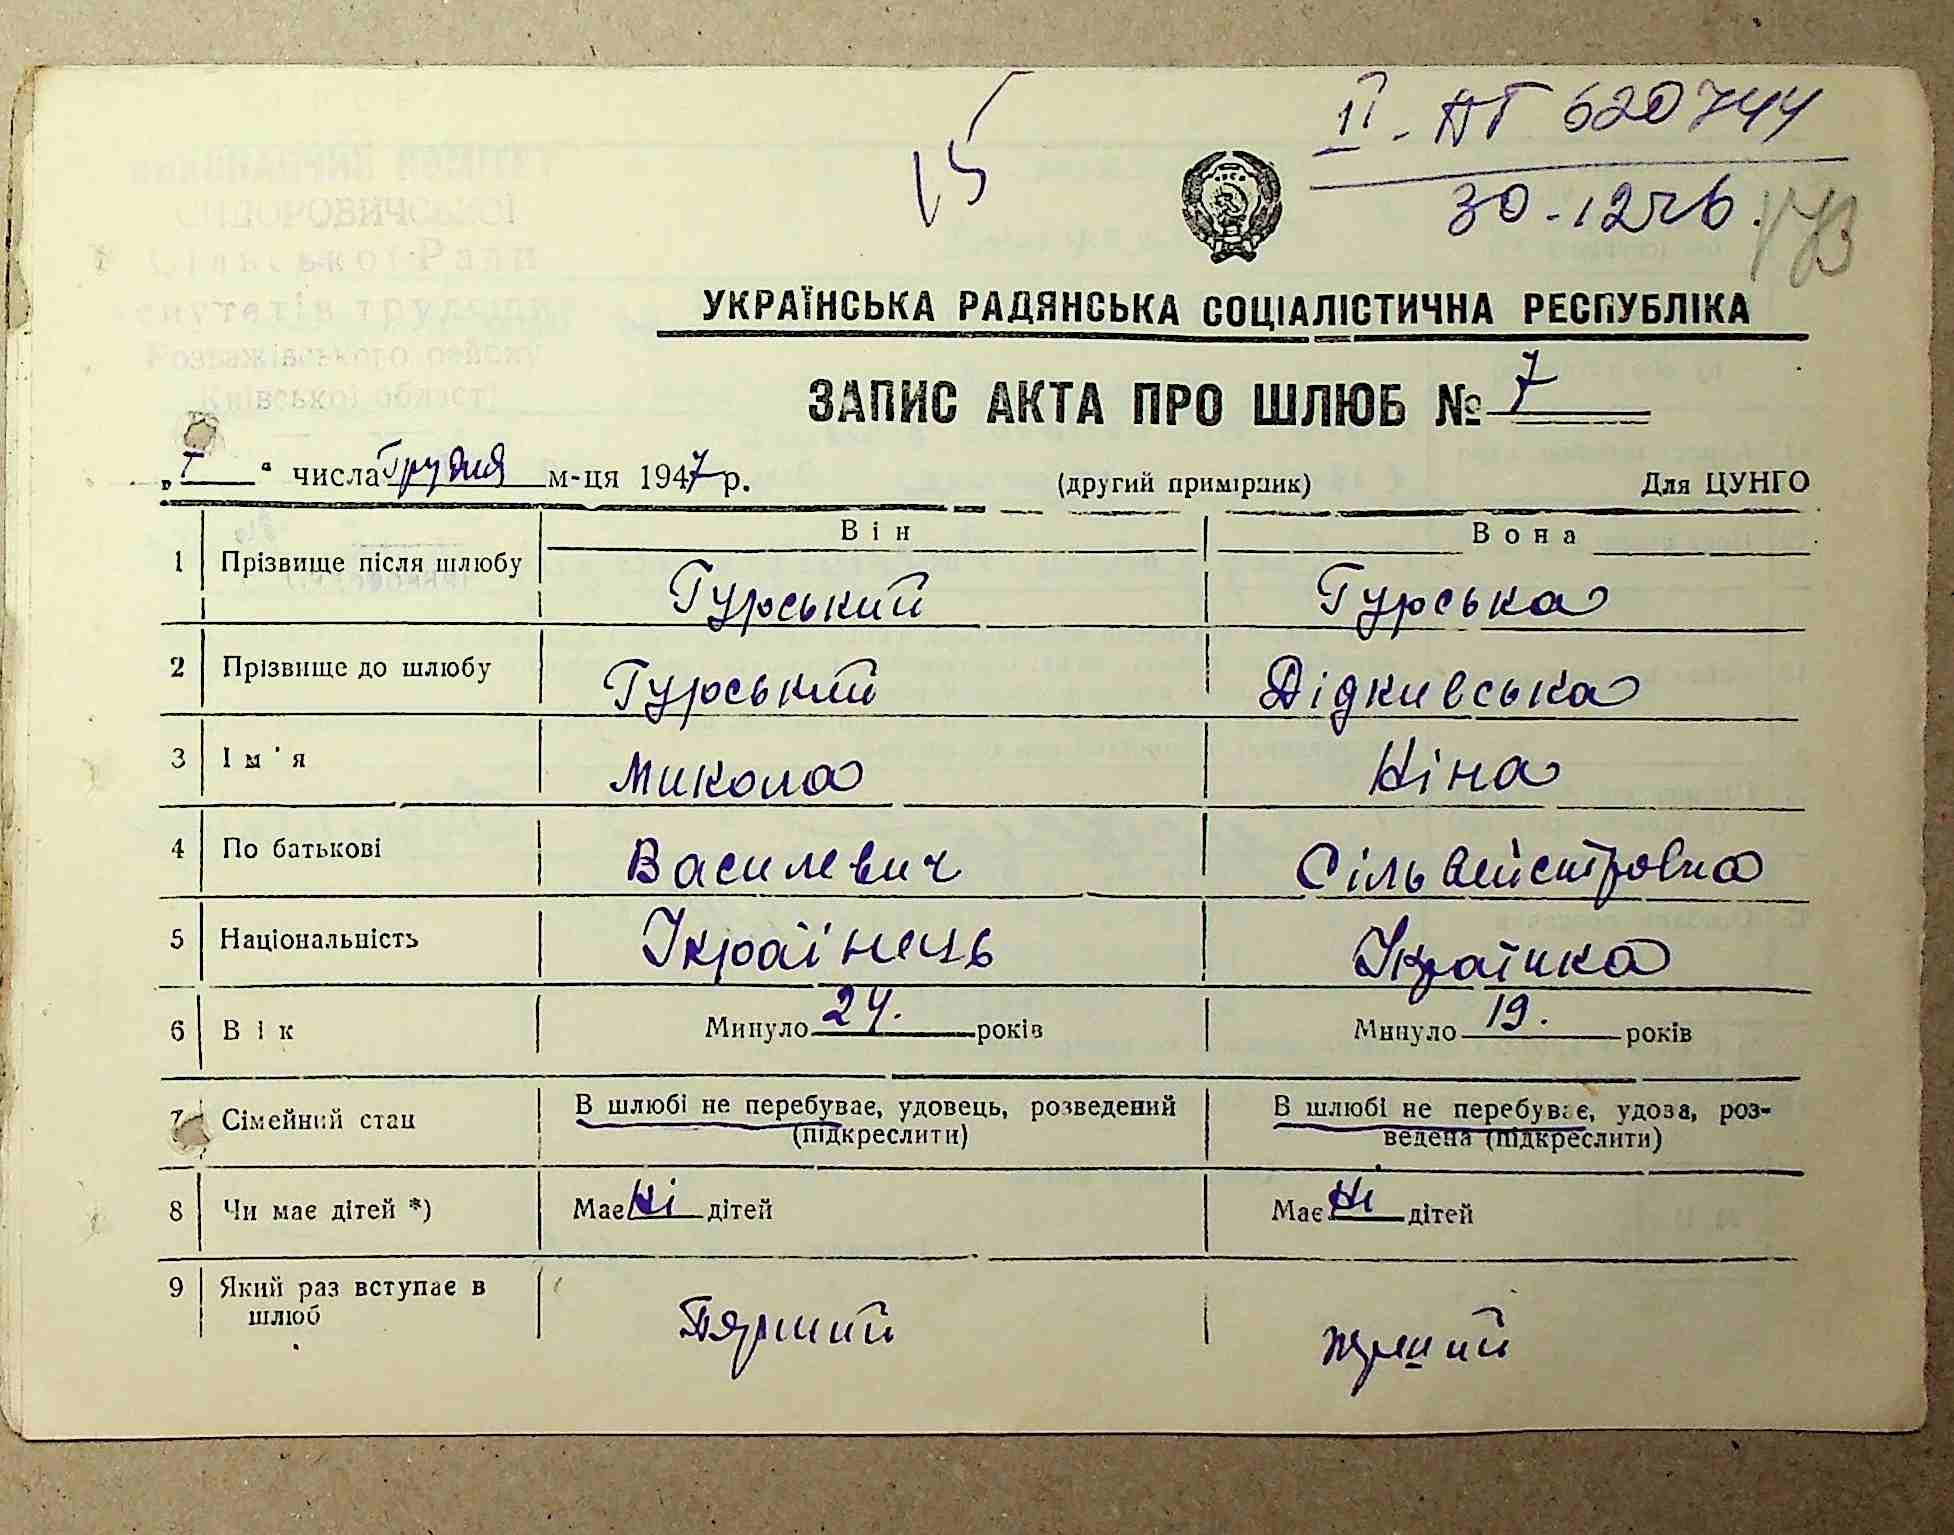 15
II - АГ 620744
30.12.76.
173
УКРАЇНСЬКА РАДЯНСЬКА СОЦІАЛІСТИЧНА РЕСПУБЛІКА
ЗАПИС АКТА ПРО ШЛЮБ № 7
числа Грудня м-ця 1947 р. (другий примірник) Для ЦУНГО
Він Вона
1 Прізвище після шлюбу Гурський Гурська
2 Прізвище до шлюбу Гурський Дідкивська
3 Ім'я Микола Ніна
4 По батькові Василевич Сільвейстровна
5 Національність Українець Українка
6 Вік Минуло 24. років Минуло 19. років
7 Сімейний стан В шлюбі не перебуває, удовець, розведений В шлюбі не перебуває, удова, роз-
(підкреслити) ведена (підкреслити)
8 Чи має дітей *) Має ні дітей Має ні дітей
9 Який раз вступає в
шлюб Пярший